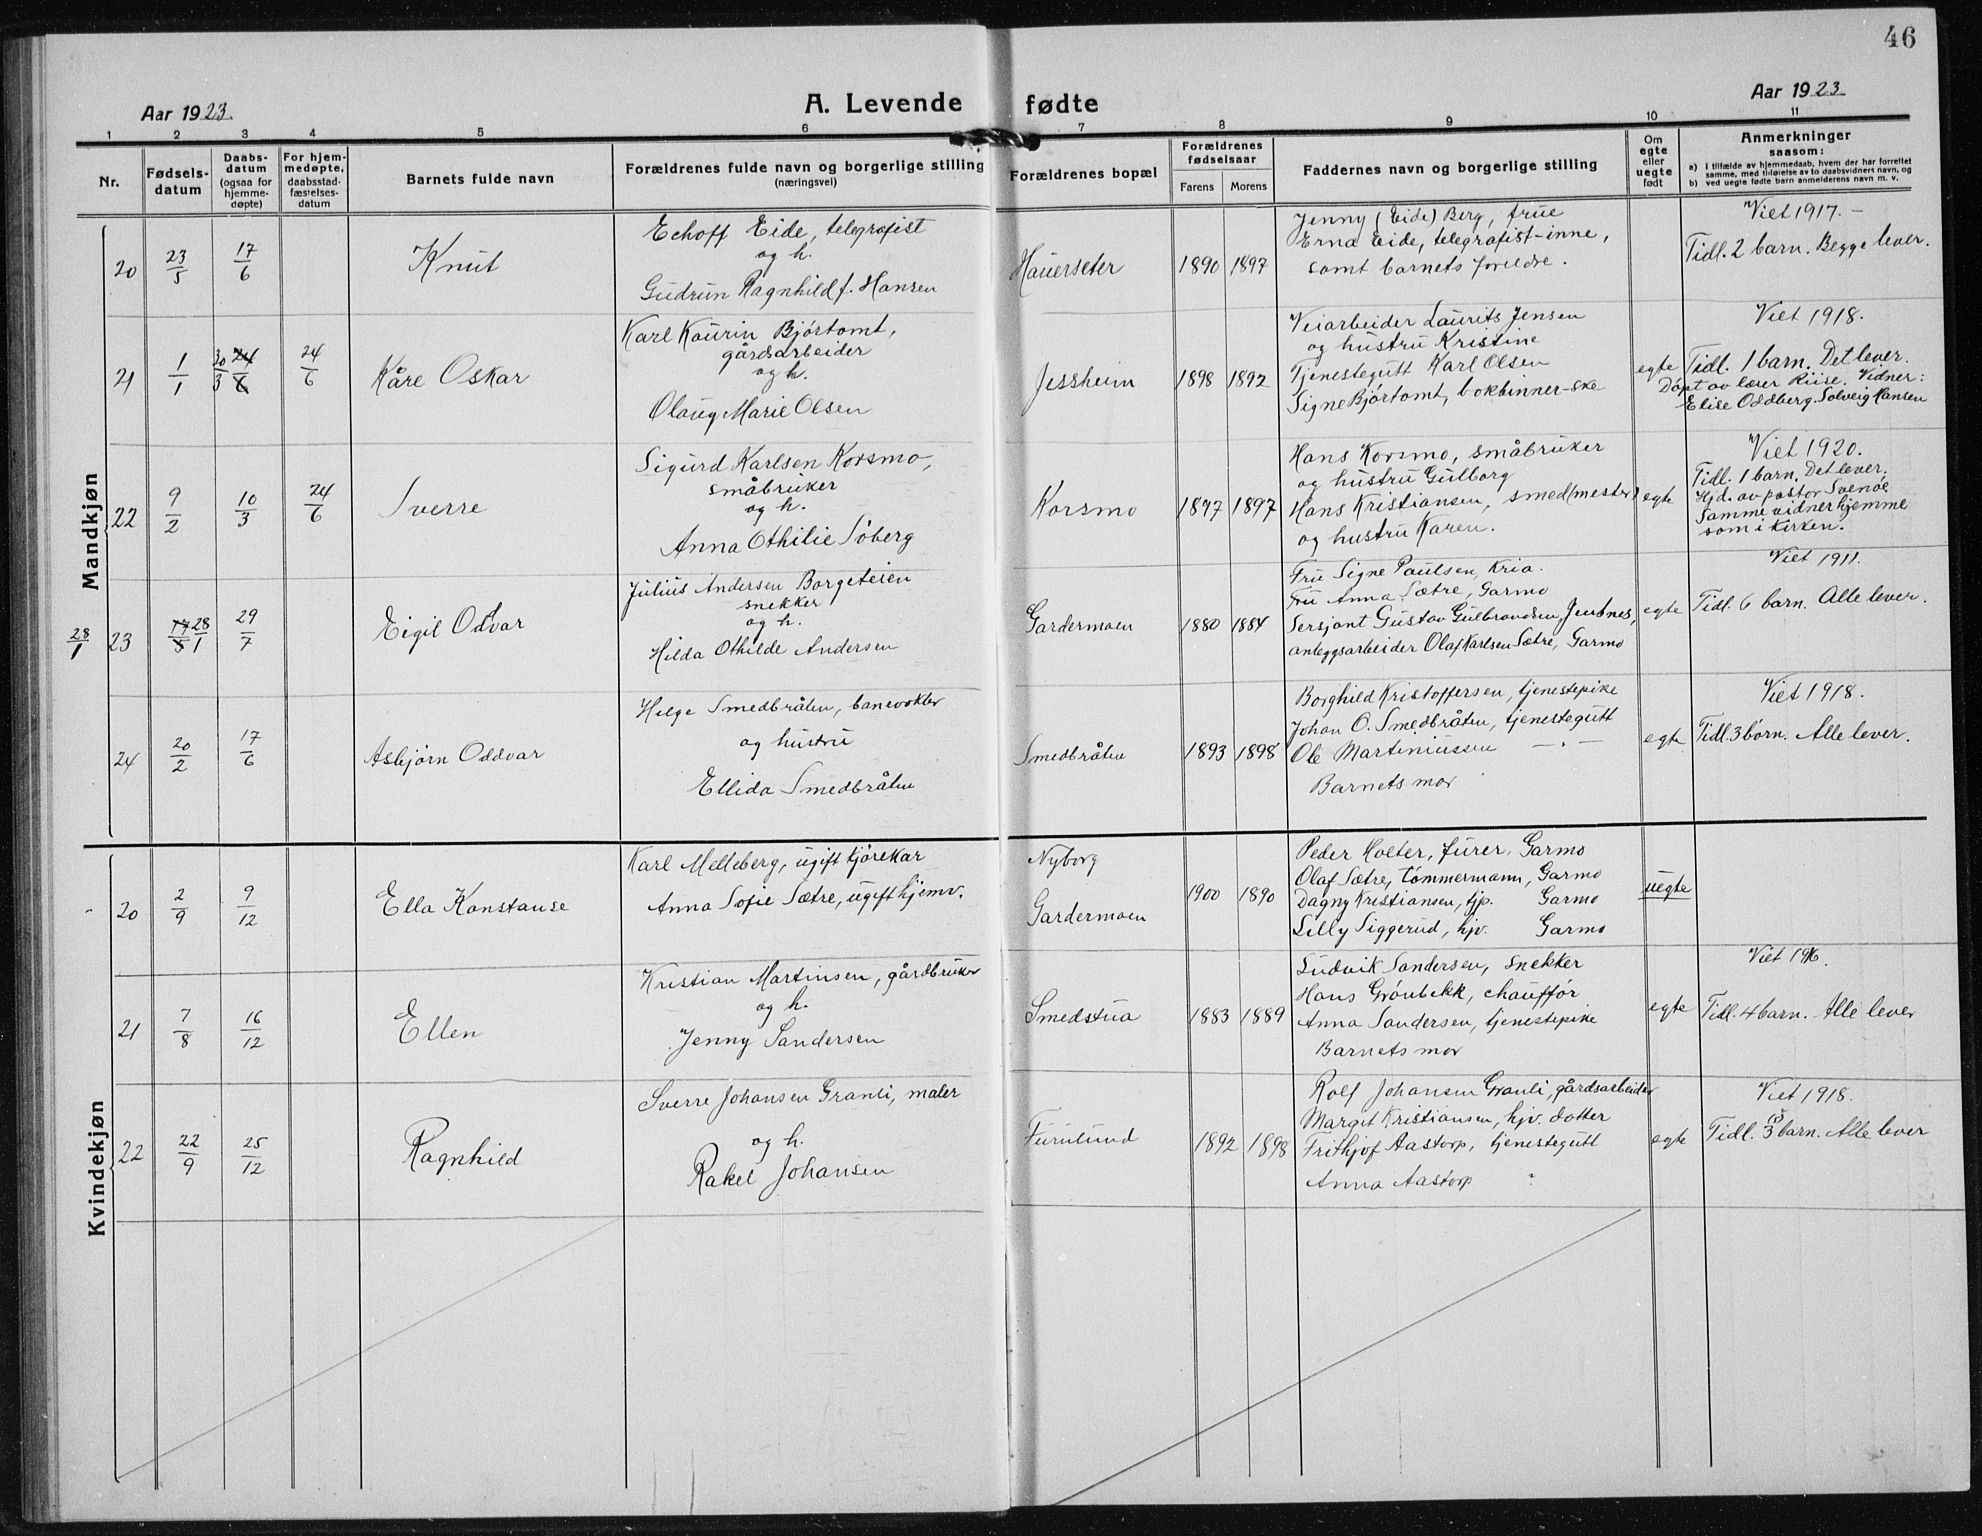 46
Aar 1923.
A. Levende fødte
Aar 1923.
1 2 3 4 5 6 7 8 9 10 11
Nr.
Fødsels-
datum
Daabs-
datum
(ogsaa for
hjemme-
døpte)
For hjem-
medøpte,
daabsstad-
fæstelses-
datum
Barnets fulde navn
Forældrenes fulde navn og borgerlige stilling
(næringsvei)
Forældrenes bopæl
Forældrenes
fødselsaar
Farens Morens
Faddernes navn og borgerlige stilling
Om
egte
eller
uegte
født
Anmerkninger
saasom:
a) I tilfælde av hjemmedaab, hvem der har forrettet
samme, med tilføielse av to daabsvidners navn, og
b) ved uegte fødte barn anmelderens navn m. v.
Mandkjøn
20 23/5 17/6
Knut
Echoff Eide, telegrafist
og h.
Gudrun Ragnhild f. Hansen
Hauerseter
1890 1897
Jenny (Eide) Berg, frue
Erna Eide, telegrafist-inne,
samt barnets foreldre.
Viet 1917. –
Tidl. 2 barn. Begge lever.
21 1/1 30/3 24/6 24/6
Kåre Oskar
Karl Kaurin Bjørtomt,
gårdsarbeider
og h.
Olaug Marie Olsen
Jessheim
1898 1892
Veiarbeider Laurits Jensen
og hustru Kristine
Tjenestegutt Karl Olsen
Signe Bjørtomt, bokbinner-ske
egte
Viet 1918.
Tidl. 1 barn. Det lever.
Døpt av lærer Riise. Vidner:
Elise Oddberg. Solveig Hansen
22 9/2 10/3 24/6
Sverre
Sigurd Karlsen Korsmo,
småbruker
og h.
Anna Othilie Søberg
Korsmo
1897 1897
Hans Korsmo, småbruker
og hustru Gulborg
Hans Kristiansen, smed(mester)
og hustru Karen.
egte
Viet 1920.
Tidl. 1 barn. Det lever.
Hjd. av pastor Svenöe
Samme vidner hjemme
som i kirken.
28/1 23 17/5 28/1 29/7
Eigil Odvar
Julius Andersen Borgeteien
snekker
og h.
Hilda Othilde Andersen
Gardermoen
1880 1884
Fru Signe Paulsen, Kria.
Fru Anna Sætre, Garmo
Sersjant Gustav Gulbrandsen Jembnes,
anleggsarbeider Olaf Karlsen Sætre, Garmo
egte
Viet 1911.
Tidl. 6 barn. Alle lever.
24 20/2 17/6
Asbjørn Oddvar
Helge Smedbråten, banevokter
og hustru
Ellida Smedbråten
Smedbråten
1893 1898
Borghild Kristoffersen, tjenestepike
Johan O. Smedbråten, tjenestegutt
Ole Martiniussen — " —
Barnets mor
egte
Viet 1918.
Tidl. 3 børn. Alle lever.
Kvindekjøn
20 2/9 9/12
Ella Konstanse
Karl Melleberg, ugift kjørekar
Anna Sofie Sætre, ugift hjemv.
Nyborg
Gardermoen
1900 1890
Peder Holter, furer, Garmo
Olaf Sætre, tømmermann, Garmo
Dagny Kristiansen, tjp. Garmo
Lilly Siggerud, hjv. Garmo
uegte
21 7/8 16/12
Ellen
Kristian Martinsen, gårdbruker
og h.
Jenny Sandersen
Smedstua
1883 1889
Ludvik Sandersen, snekker
Hans Grønbekk, chauffør
Anna Sandersen, tjenestepike
Barnets mor
egte
Viet 1916.
Tidl. 4 barn. Alle lever
22 22/9 25/12
Ragnhild
Sverre Johansen Granli, maler
og h.
Rakel Johansen
Furulund
1892 1898
Rolf Johansen Granli, gårdsarbeider
Margit Kristiansen, hjv. dotter
Frithjof Aastorp, tjenestegutt
Anna Aastorp "
egte
Viet 1918.
Tidl. 3 barn. Alle lever